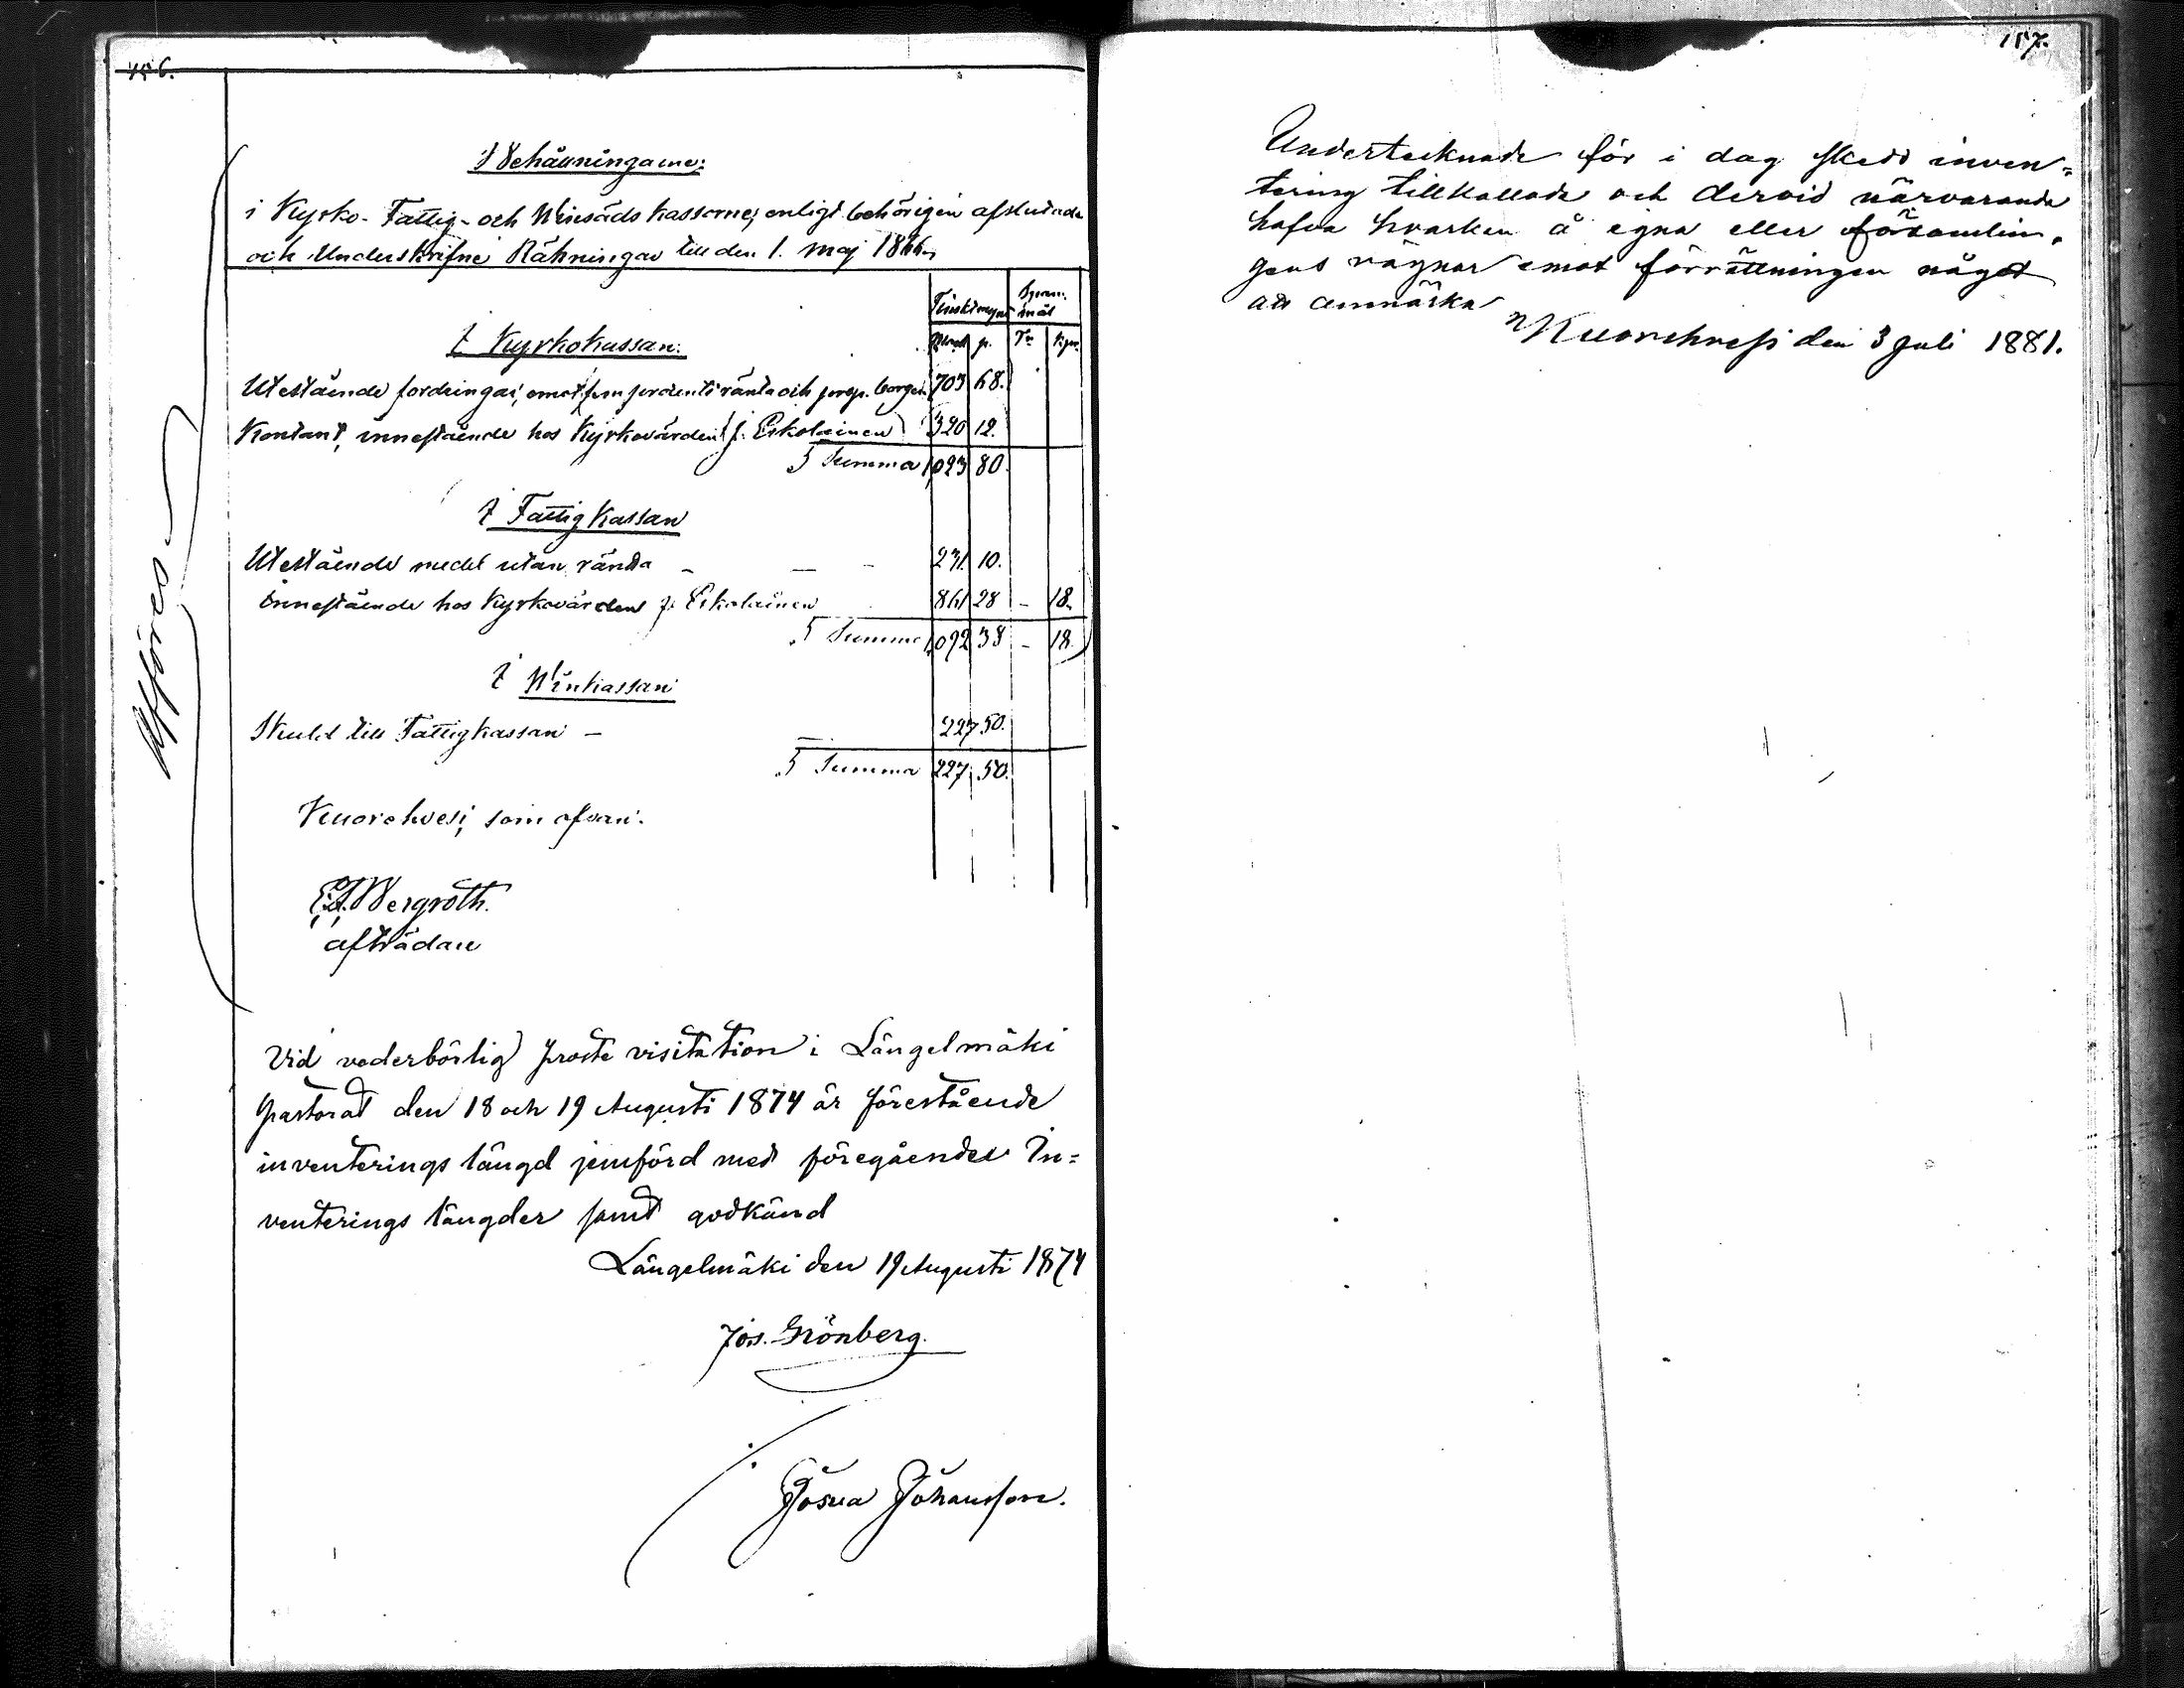 156.
Behållningarne:
i Kyrko- Fattig- och Winsäds kassorne, enligt behörigen afslutade
och Underskrifne Räkningar till den 1. maj 1866.
Finskt mynt Spanmål
Mark p. Tr. Kpr.
I Kyrkokassan:
Utestående fordringar, emot fem procents ränta och prop. borgen 703 68.
Kontant, innestående hos Kyrkovärden J. Eskolainen 320 12.
Summa 1,023 80.
I Fattig Kassan
Utestående medel utan ränta — — — 231 10.
Innestående hos Kyrkovärden J. Eskolainen 861 28 — 18.
Summa 1,092 38 — 18.
I Winkassan
Skuld till Fattigkassan — — 227 50.
Summa 227 50.
Kuorehvesi, som ofvan.
Bergroth.
afträdare
Uppföres
Vid vederbörlig proste visitation i Längelmäki
Pastorat den 18 och 19 Augusti 1874 är förestående
inventerings längd jemförd med föregående In=
venterings längder samt godkänd
Längelmäki den 19 Augusti 1874
Jos. Grönberg.
Josua Johansson.
157.
Undertecknade för i dag skedd inven=
tering tillkallade och dervid närvarande
hafva hvarken å egna eller församlin=
gens vägnar emot förrättningen något
att anmärka
Kuorehvesi den 3 Juli 1881.